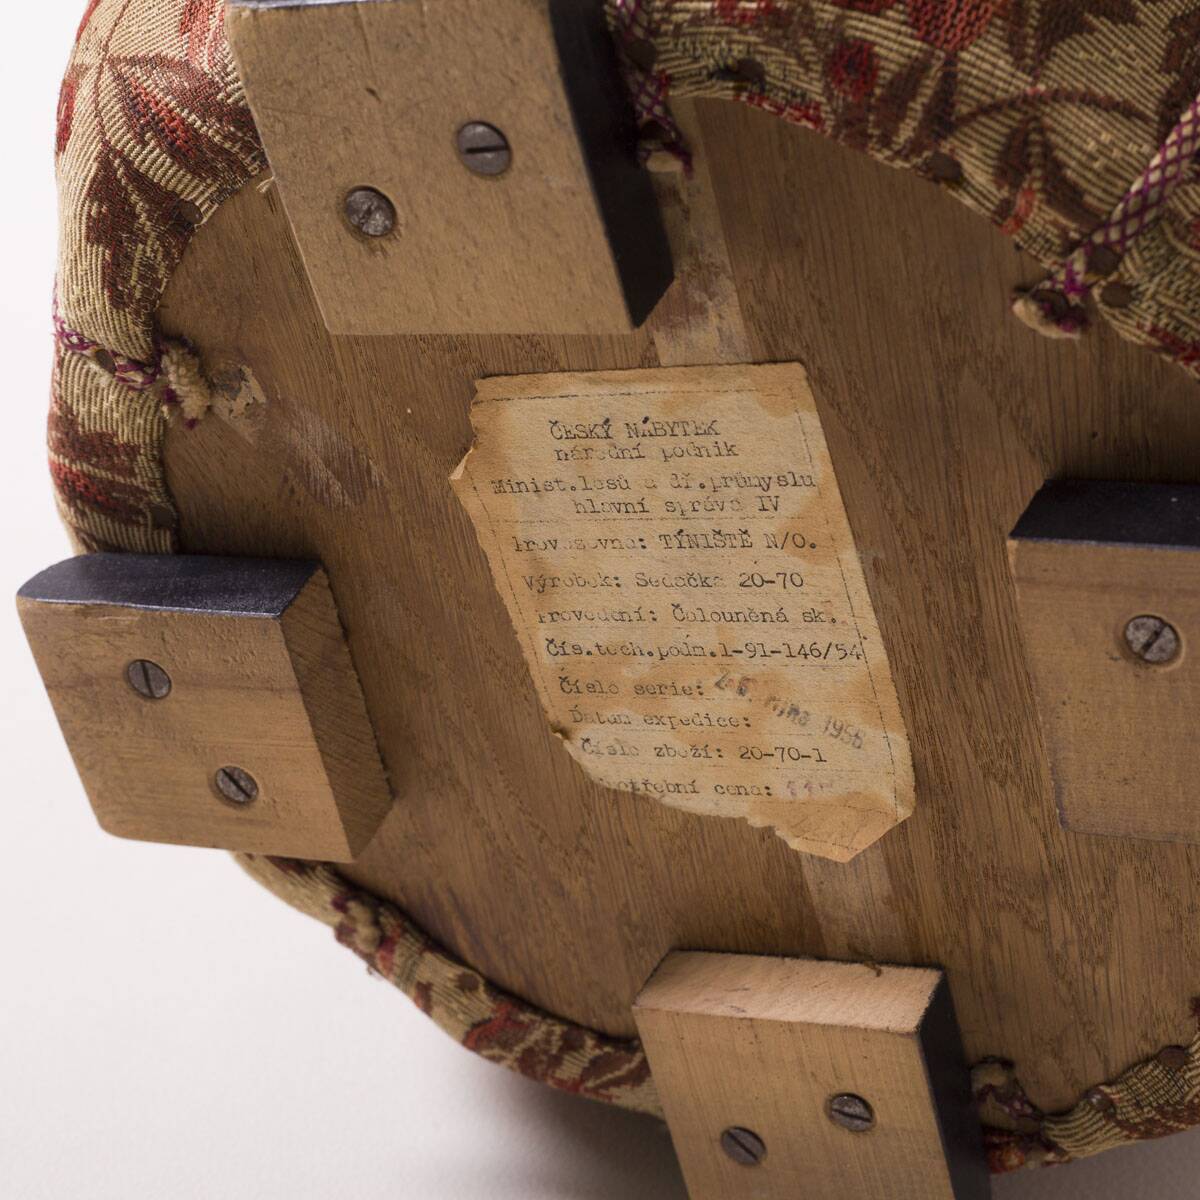 ČESKÝ NÁBYTEK
národní podnik
Minist.lesů a dř.průmyslu
hlavní správa IV
Provozovna: TÝNIŠTĚ N/O.
Výrobek: Sedačka 20-70
Provedení: Čalouněná sk.
Čís.tech.podm.1-91-146/54
Číslo serie:
října 1956
Datum expedice:
Číslo zboží: 20-70-1
potřební cena: